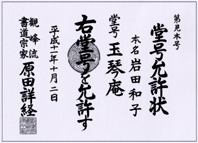 第見本号
堂号允許状
本名 岩田和子
堂号 玉琴庵
右堂号を允許す
平成十一年十月二日
観峰流
書道宗家 原田詳経